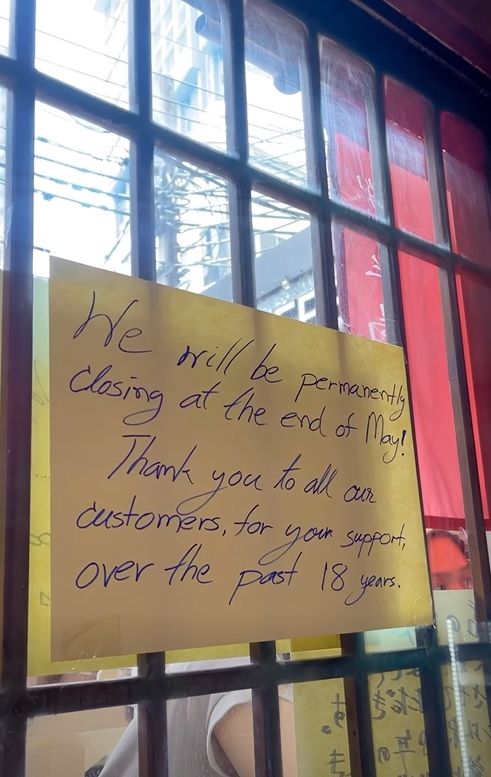 We will be permanently
closing at the end of May!
Thank you to all our
customers, for your support,
over the past 18 years.